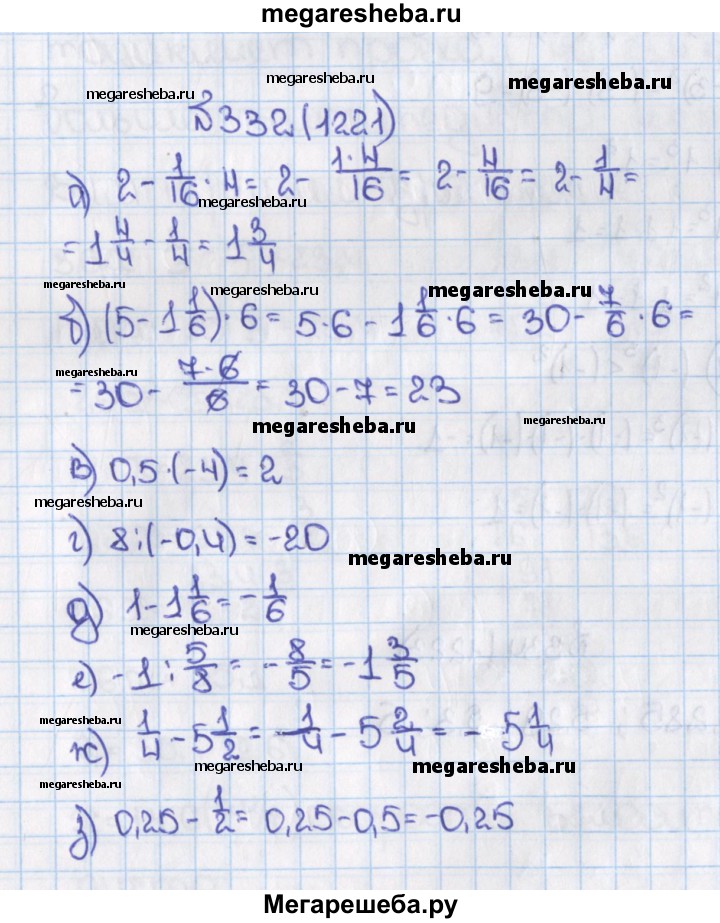 megaresheba.ru
megaresheba.ru
megaresheba.ru
megaresheba.ru
№332(1221)
а) 2 - 1/16 · 4 = 2 - 1·4/16 = 2 - 4/16 = 2 - 1/4 =
megaresheba.ru
= 1 4/4 - 1/4 = 1 3/4
megaresheba.ru
megaresheba.ru
megaresheba.ru
б) (5 - 1 1/6) · 6 = 5·6 - 1 1/6 · 6 = 30 - 7/6 · 6 =
megaresheba.ru
= 30 - 7·6/6 = 30 - 7 = 23
megaresheba.ru
megaresheba.ru
в) 0,5·(-4) = 2
megaresheba.ru
г) 8:(-0,4) = -20
megaresheba.ru
д) 1 - 1 1/6 = - 1/6
megaresheba.ru
е) -1 : 5/8 = - 8/5 = -1 3/5
megaresheba.ru
ж) 1/4 - 5 1/2 = 1/4 - 5 2/4 = - 5 1/4
megaresheba.ru
megaresheba.ru
megaresheba.ru
з) 0,25 - 1/2 = 0,25 - 0,5 = -0,25
Мегарешеба.ру